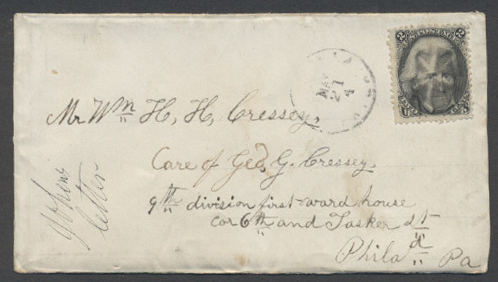 Mr Wm H, H, Cressey,
Care of Geo, G. Cressey.
9th division first-ward house
cor 6th and Tasker st
Phila Pa
letter
MAY
21
U.S. POSTAGE
2 2